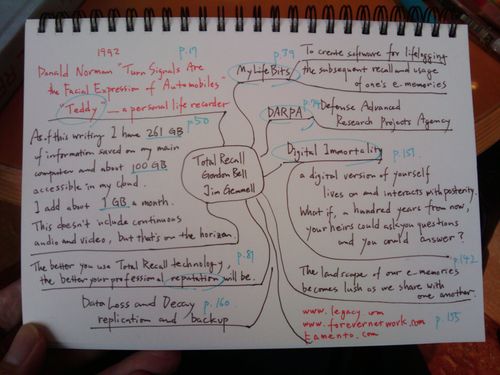 1992
p.19
Donald Norman "Turn Signals Are
the Facial Expression of Automobiles"
"Teddy" — a personal life recorder
p.50
As of this writing I have 261 GB
of information saved on my main
computer and about 100 GB
accessible in my cloud.
I add about 1 GB a month.
This doesn't include continuous
audio and video, but that's on the horizon.
p.81
The better you use Total Recall technology,
the better your professional reputation will be.
Data Loss and Decay
replication and backup
p.160
Total Recall
Gordon Bell
Jim Gemmell
MyLifeBits
p.39
To create software for lifelogging
the subsequent recall and usage
of one's e-memories
DARPA
Defense Advanced
Research Projects Agency
Digital Immortality
p.151
a digital version of yourself
lives on and interacts with posterity.
What if, a hundred years from now,
your heirs could ask you questions
and you could answer?
p.142
The landscape of our e-memories
becomes lush as we share with
one another.
www.legacy.com
www.forevernetwork.com
p.155